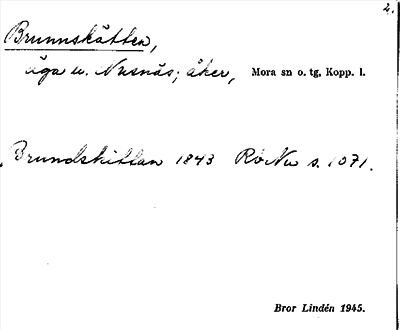 2.
Brunnskätten,
äga u. Nusnäs; åker, Mora sn o. tg, Kopp. l.
Brundskittan 1843 RöNu s. 1071.
Bror Lindén 1945.